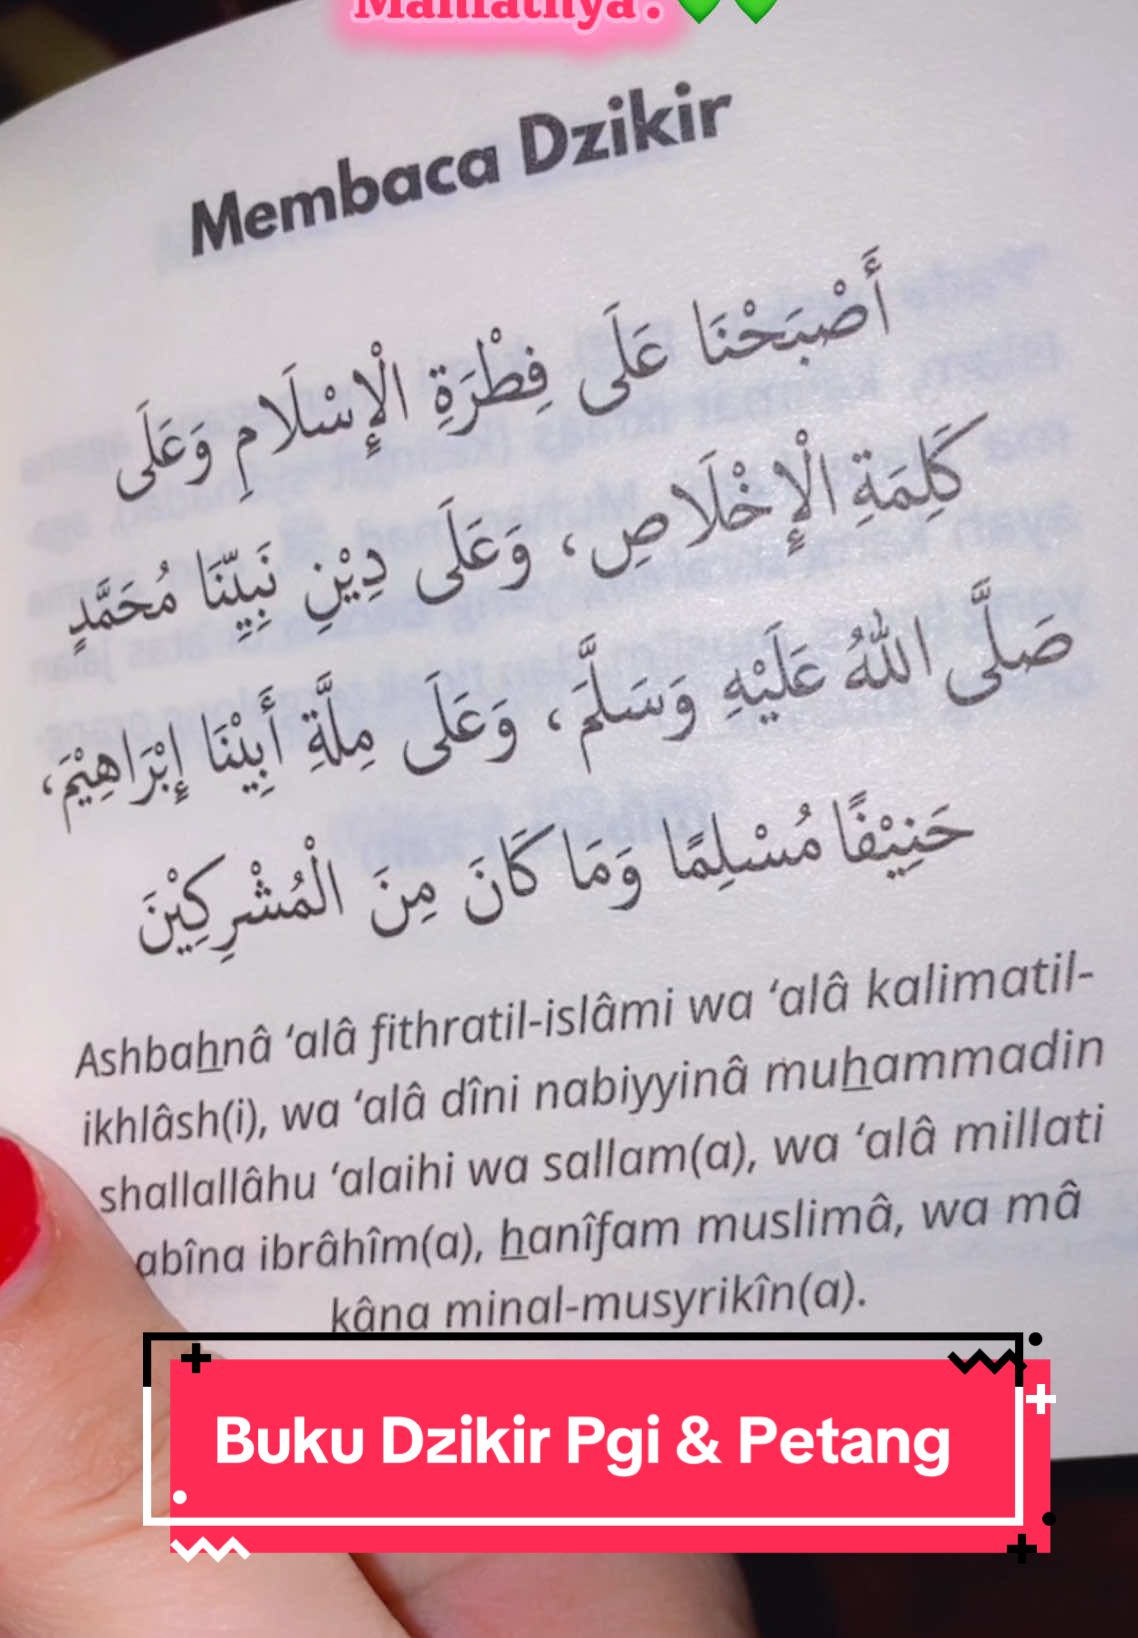 Manfatnya.
Membaca Dzikir
أَصْبَحْنَا عَلَى فِطْرَةِ الْإِسْلَامِ وَعَلَى
كَلِمَةِ الْإِخْلَاصِ، وَعَلَى دِيْنِ نَبِيِّنَا مُحَمَّدٍ
صَلَّى اللهُ عَلَيْهِ وَسَلَّمَ، وَعَلَى مِلَّةِ أَبِيْنَا إِبْرَاهِيْمَ،
حَنِيْفًا مُسْلِمًا وَمَا كَانَ مِنَ الْمُشْرِكِيْنَ
Ashbaẖnâ ‘alâ fithratil-islâmi wa ‘alâ kalimatil-
ikhlâsh(i), wa ‘alâ dîni nabiyyinâ muẖammadin
shallallâhu ‘alaihi wa sallam(a), wa ‘alâ millati
abîna ibrâhîm(a), ẖanîfam muslimâ, wa mâ
kâna minal-musyrikîn(a).
Buku Dzikir Pgi & Petang